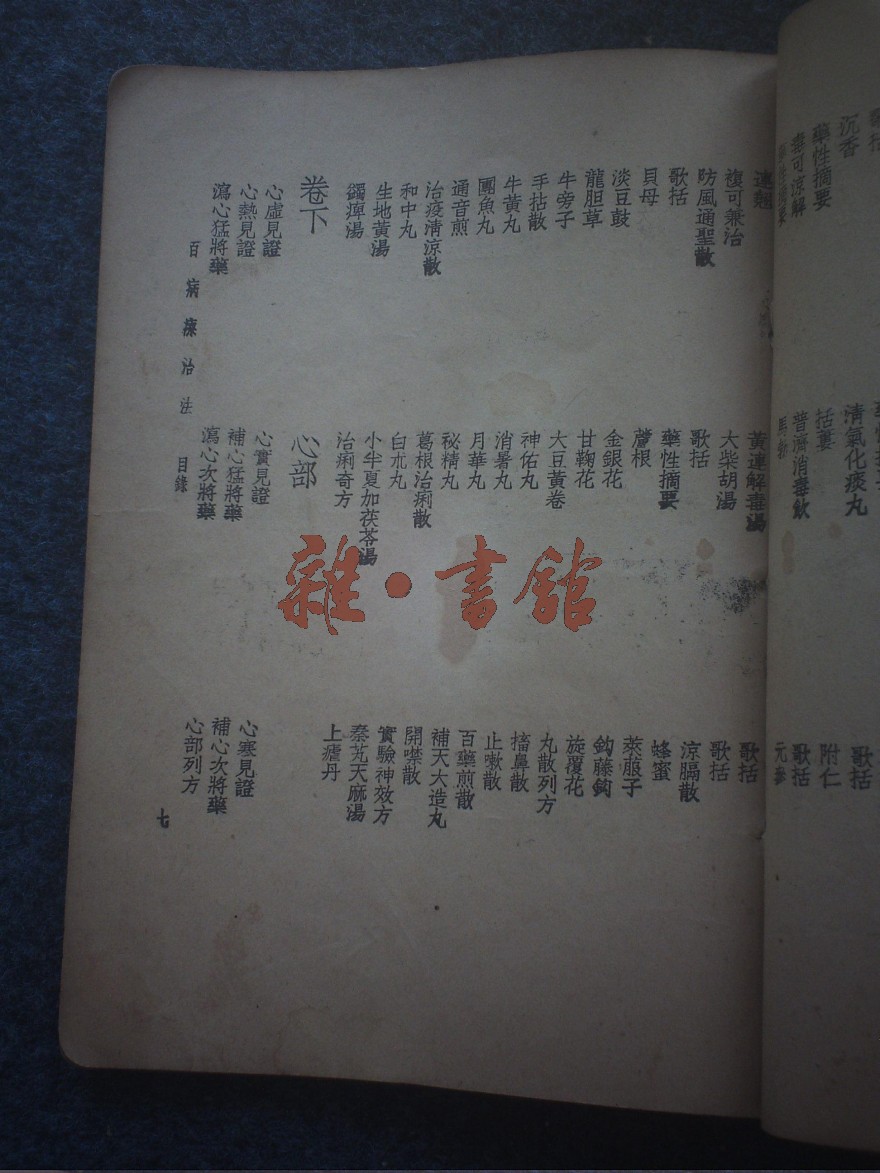 歌括
沉香 清氣化痰丸 歌括
藥性摘要 括蔞 附仁
毒可涼解 普濟消毒飲 歌括
馬勃 元參
連翹 黃連解毒湯 歌括
複可兼治 大柴胡湯 歌括
防風通聖散 歌括 涼膈散
歌括 藥性摘要 蜂蜜
貝母 蘆根 萊菔子
淡豆鼓 金銀花 鈎藤鈎
龍胆草 甘鞠花 旋覆花
牛旁子 大豆黃卷 丸散列方
手拈散 神佑丸 搐鼻散
牛黃丸 消暑丸 止嗽散
團魚丸 月華丸 百藥煎散
通音煎 祕精丸 補天大造丸
治疫清涼散 葛根治痢散 開噤散
和中丸 白朮丸 實驗神效方
生地黃湯 小半夏加茯苓湯 秦艽天麻湯
蠲痺湯 治痢奇方 上瘧丹
卷下 心部
心虛見證 心實見證 心寒見證
心熱見證 補心猛將藥 補心次將藥
瀉心猛將藥 瀉心次將藥 心部列方
百病療治法 目錄 七
雜·書館